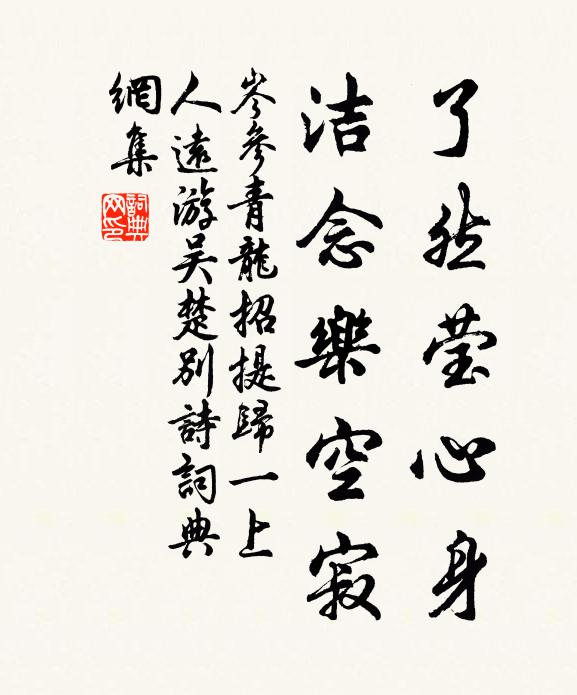 了然莹心身
洁念樂空寂
岑參青龍招提歸一上
人遠游吴楚别詩詞典
網集
詞典
网印